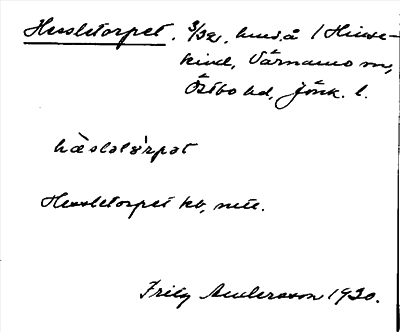 Hessletorpet. 3/32, hmd å 1 Hinse-
kind, Värnamo sn,
Östbo hd, Jönk. l.
hæslətǫ̀rpət
Hessletorpet kb, mtl.
Fritz Andersson 1930.